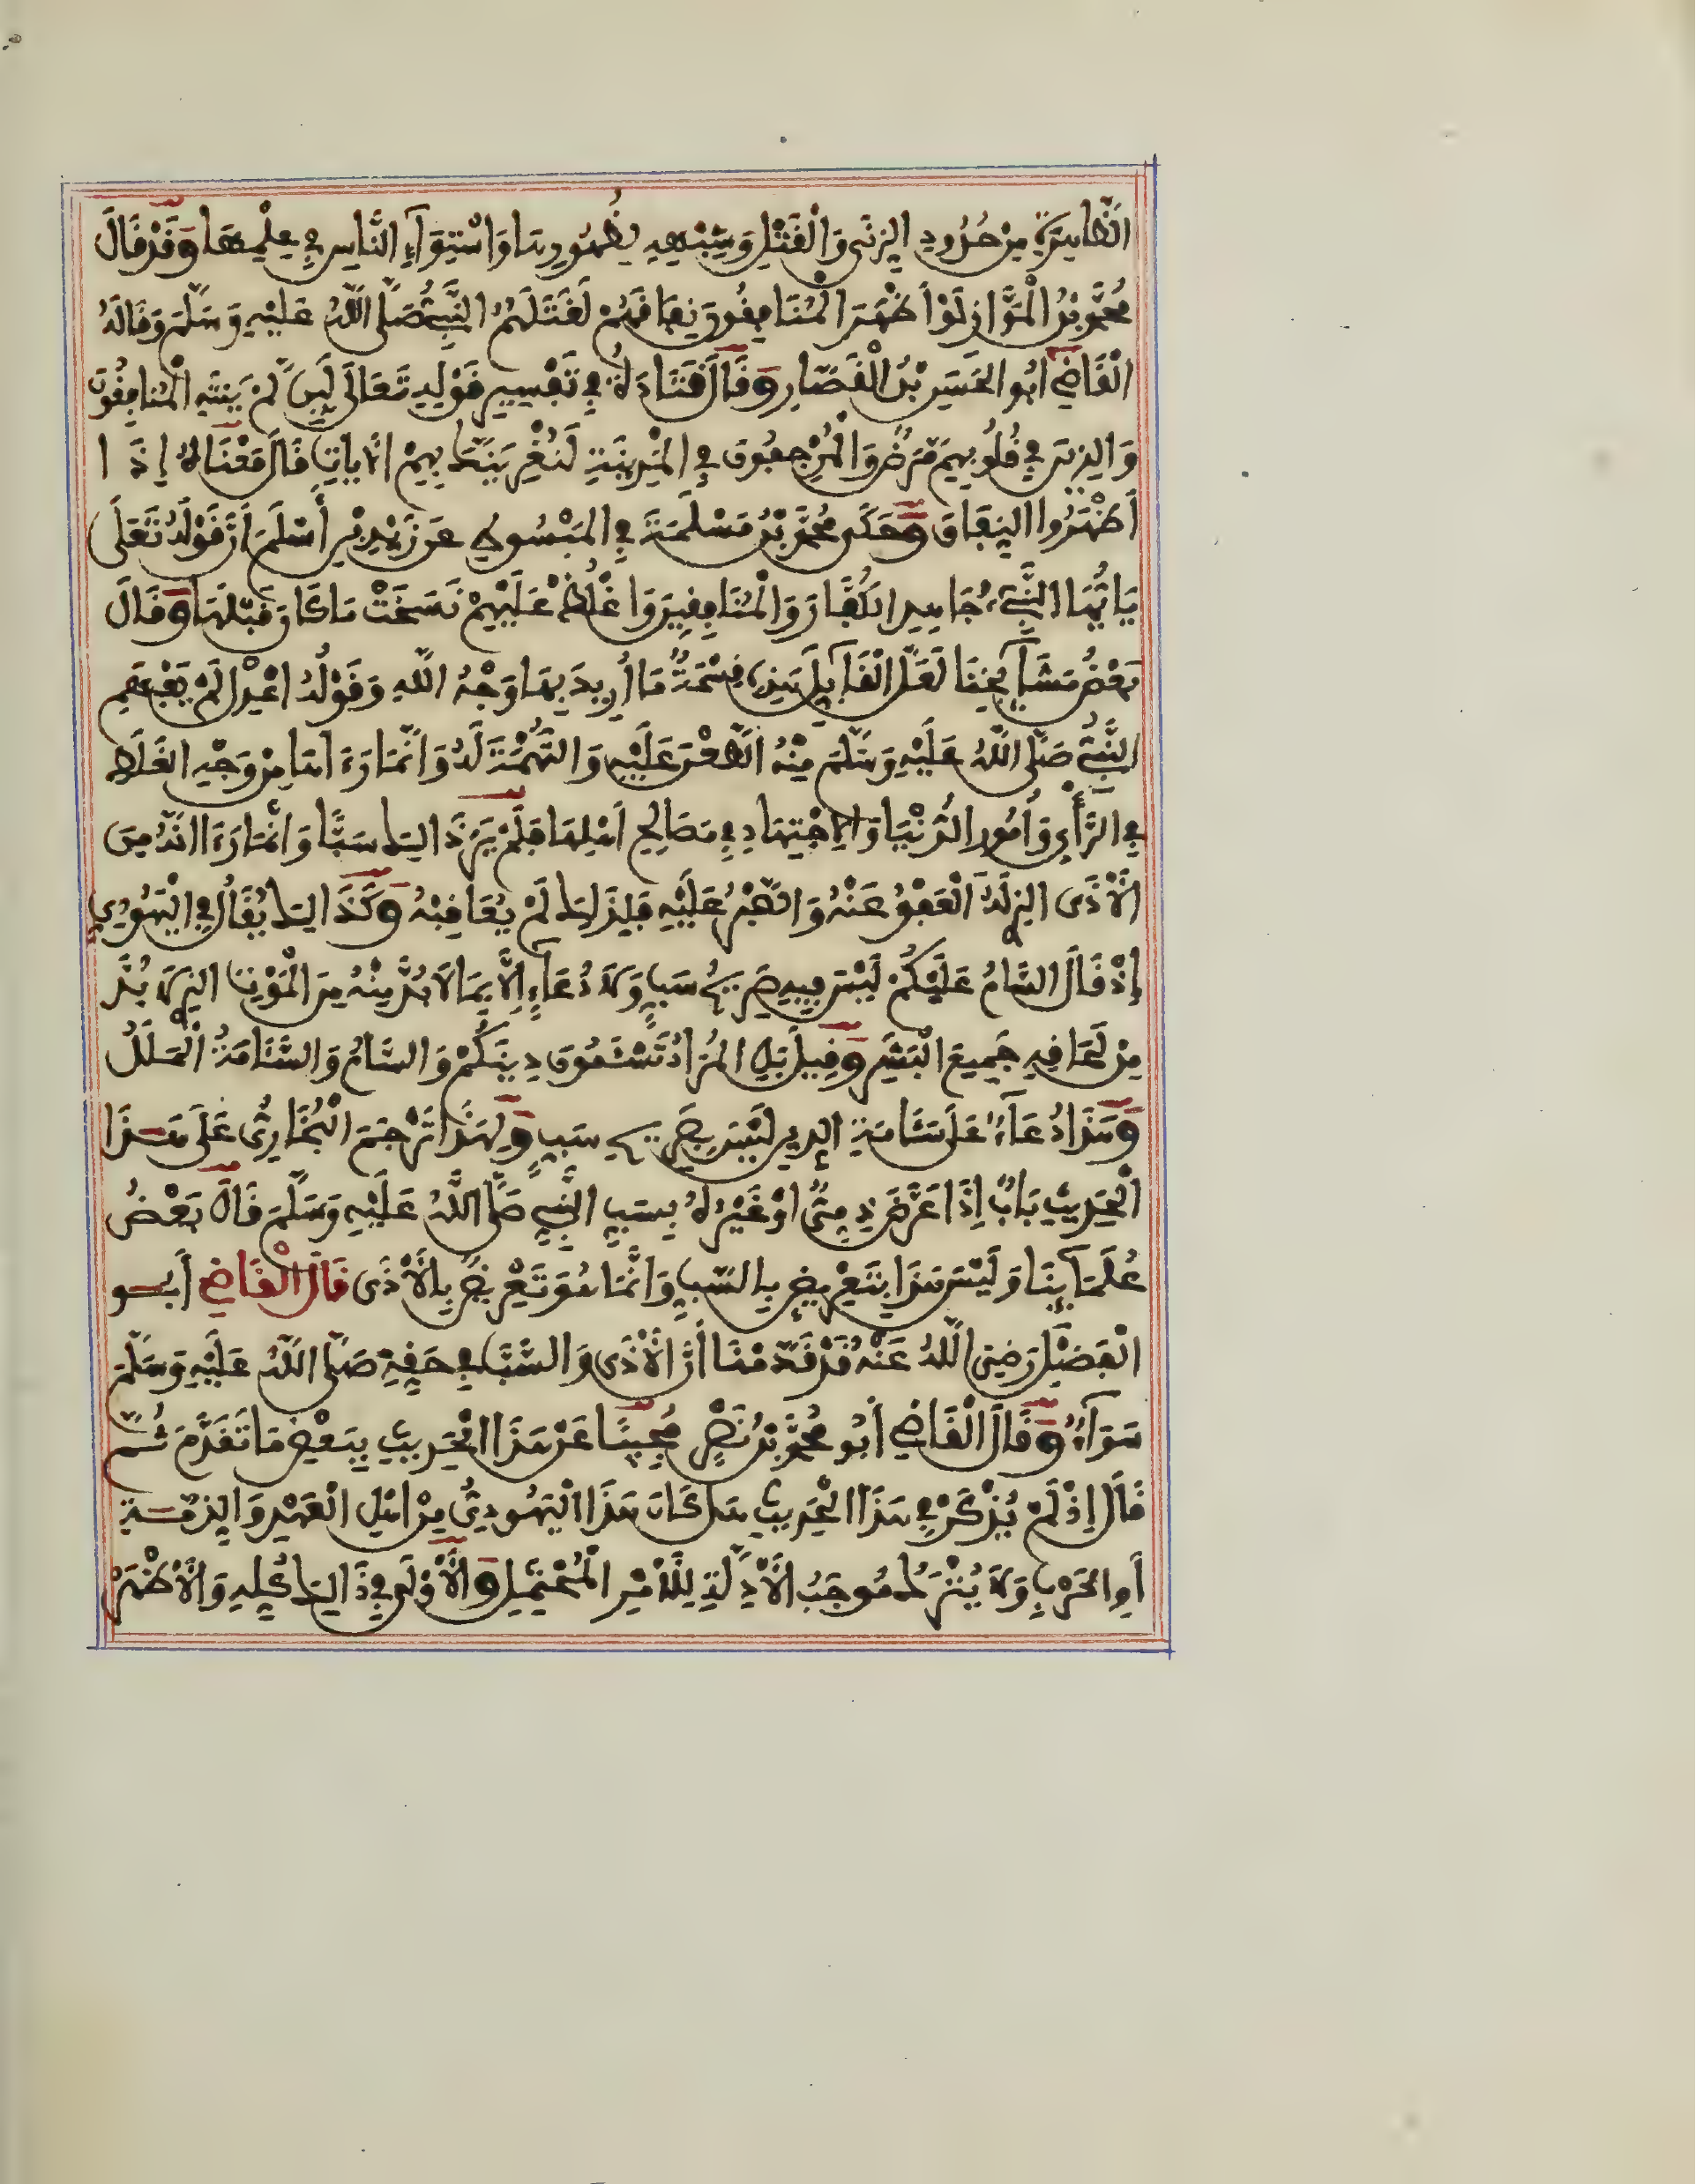 الظَّاهِرَةِ مِنْ حُدُودِ الزِّنَى وَالْقَتْلِ وَشِبْهِهِ لِظُهُورِهَا وَاسْتِوَاءِ النَّاسِ فِي عِلْمِهَا وَقَدْ قَالَ
مُحَمَّدُ بْنُ الْمَوَّازِ لَوْ أَظْهَرَ الْمُنَافِقُونَ نِفَاقَهُمْ لَقَتَلَهُمُ النَّبِيُّ صَلَّى اللَّهُ عَلَيْهِ وَسَلَّمَ وَقَالَهُ
الْقَاضِي أَبُو الْحَسَنِ بْنُ الْقَصَّارِ وَقَالَ قَتَادَةُ فِي تَفْسِيرِ قَوْلِهِ تَعَالَى لَئِن لَّمْ يَنْتَهِ الْمُنَافِقُونَ
وَالذِينَ فِي قُلُوبِهِم مَّرَضٌ وَالْمُرْجِفُونَ فِي الْمَدِينَةِ لَنُغْرِيَنَّكَ بِهِمْ الْآيَاتِ قَالَ مَعْنَاهُ إِذَا
أَظْهَرُوا النِّفَاقَ وَحَكَى مُحَمَّدُ بْنُ مَسْلَمَةَ فِي الْمَبْسُوطِ عَنْ زَيْدِ بْنِ أَسْلَمَ أَنَّ قَوْلَهُ تَعَلَى
يَاأَيُّهَا النَّبِيءُ جَاهِدِ الْكُفَّارَ وَالْمُنَافِقِينَ وَاغْلُظْ عَلَيْهِمْ نَسَخَتْ مَا كَانَ قَبْلَهَا وَقَالَ
بَعْضُ مَشَايِخِنَا لَعَلَّ الْقَائِلَ هَذِهِ قِسْمَةٌ مَا أُرِيدَ بِهَا وَجْهُ اللَّهِ وَقَوْلُهُ اعْدِلْ لَمْ يَفْهَمِ
النَّبِيُّ صَلَّى اللَّهُ عَلَيْهِ وَسَلَّمَ مِنْهُ الطَّعْنَ عَلَيْهِ وَالتُّهْمَةَ لَهُ وَإِنَّمَا رَءَاهَا مِنْ وَجْهِ الْغَلَطِ
فِي الرَّأْيِ وَأُمُورِ الدُّنْيَا وَالِاجْتِهَادِ فِي مَصَالِحِ أَهْلِهَا فَلَمْ يَرَ ذَالِكَ سَبًّا وَإِنَّمَا رَءَا أَنَّهُ مِنَ
الْأَذَى الذِي لَهُ الْعَفْوُ عَنْهُ وَالصَّبْرُ عَلَيْهِ فَلِذَلِكَ لَمْ يُعَاقِبْهُ وَكَذَالِكَ يُقَالُ فِي الْيَهُودِيِّ
إِذْ قَالَ السَّامُ عَلَيْكُمْ لَيْسَ فِيهِ صَرِيحُ سَبٍّ وَلَا دُعَاءٍ إِلَّا بِمَا لَا بُدَّ مِنْهُ مِنَ الْمَوْتِ الذِي لَا بُدَّ
مِنْ لَحَاقِهِ جَمِيعَ الْبَشَرِ وَقِيلَ بَلِ الْمُرَادُ تَسْئَمُونَ دِينَكُمْ وَالسَّامُ وَالسَّئَامَةُ الْمَلَلُ
وَهَذَا دُعَاءٌ عَلَى سَئَامَةِ الدِّينِ لَيْسَ بِصَرِيحِ سَبٍّ وَلِهَذَا تَرْجَمَ الْبُخَارِيُّ عَلَى هَذَا
الْحَدِيثِ بَابٌ إِذَا عَرَّضَ ذِمِّيٌّ أَوْ غَيْرُهُ بِسَبِّ النَّبِيِّ صَلَّى اللَّهُ عَلَيْهِ وَسَلَّمَ قَالَ بَعْضُ
عُلَمَائِنَا وَلَيْسَ هَذَا بِتَعْرِيضٍ بِالسَّبِّ وَإِنَّمَا هُوَ تَعْرِيضٌ بِالْأَذَى قَالَ الْقَاضِي أَبُو
الْفَضْلِ رَضِيَ اللَّهُ عَنْهُ قَدْ قَدَّمْنَا أَنَّ الْأَذَى وَالسَّبَّ فِي حَقِّهِ صَلَّى اللَّهُ عَلَيْهِ وَسَلَّمَ
سَوَاءٌ وَقَالَ الْقَاضِي أَبُو مُحَمَّدِ بْنُ نَصْرٍ مُجِيبًا عَنْ هَذَا الْحَدِيثِ بِبَعْضِ مَا تَقَدَّمَ ثُمَّ
قَالَ إِذْ لَمْ يُذْكَرْ فِي هَذَا الْحَدِيثِ هَلْ كَانَ هَذَا الْيَهُودِيُّ مِنْ أَهْلِ الْعَهْدِ وَالذِّمَّةِ
أَوِ الْحَرْبِ وَلَا يُتْرَكُ مُوجَبُ الْأَدِلَّةِ لِلْأَمْرِ الْمُحْتَمِلِ وَالْأَوْلَى فِي ذَالِكَ كُلِّهِ وَالْأَظْهَرُ